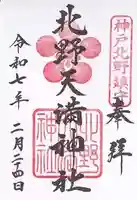 神戸北野鎮守
奉拝
北野天満神社
北野
神社
令和七年
二月二十四日